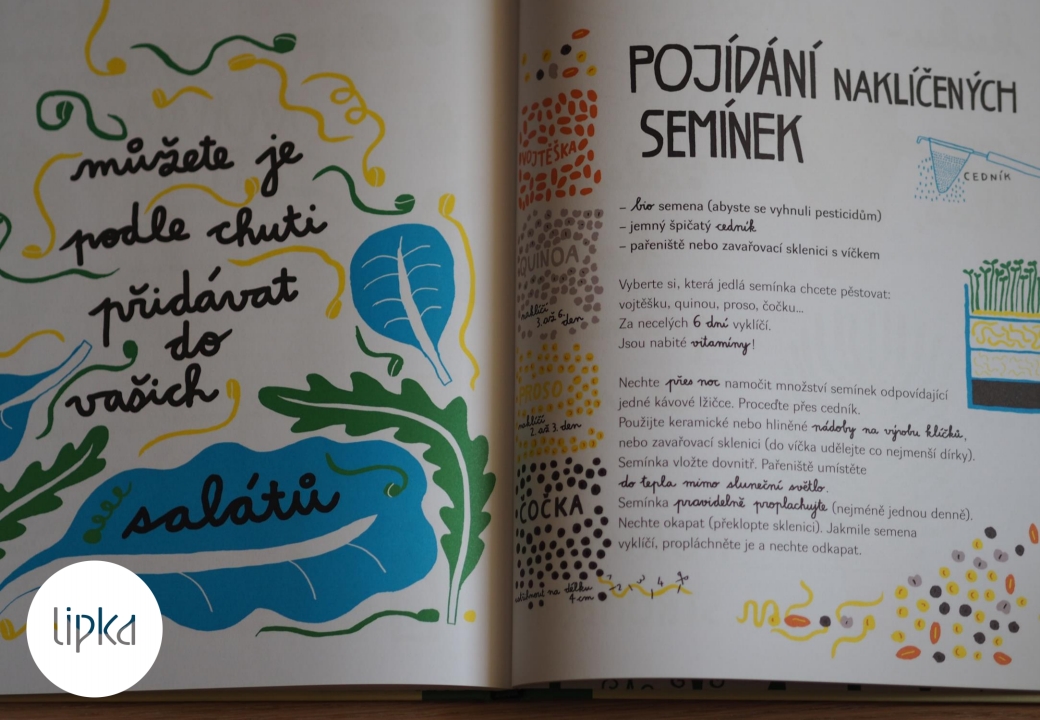 můžete je
podle chuti
přidávat
do
vašich
salátů
lipka
POJÍDÁNÍ NAKLÍČENÝCH
SEMÍNEK
CEDNÍK
– bio semena (abyste se vyhnuli pesticidům)
– jemný špičatý cedník
– pařeniště nebo zavařovací sklenici s víčkem
Vyberte si, která jedlá semínka chcete pěstovat:
vojtěšku, quinou, proso, čočku...
Za necelých 6 dní vyklíčí.
Jsou nabité vitamíny!
Nechte přes noc namočit množství semínek odpovídající
jedné kávové lžičce. Proceďte přes cedník.
Použijte keramické nebo hliněné nádoby na výrobu klíčků,
nebo zavařovací sklenici (do víčka udělejte co nejmenší dírky).
Semínka vložte dovnitř. Pařeniště umístěte
do tepla mimo sluneční světlo.
Semínka pravidelně proplachujte (nejméně jednou denně).
Nechte okapat (překlopte sklenici). Jakmile semena
vyklíčí, propláchněte je a nechte odkapat.
VOJTĚŠKA
QUINOA
naklíčí
3. až 6.
den
PROSO
naklíčí
2. až 3. den
ČOČKA
na délku
4 cm